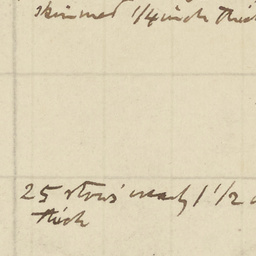 skimmed 1/4 inch thick
25 rows nearly 1 1/2
thick